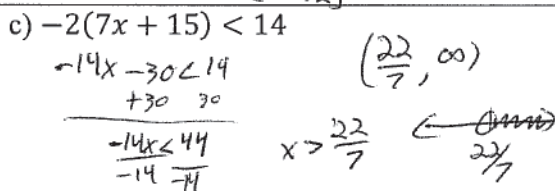 c) −2(7x + 15) < 14
-14x - 30 < 14
+30 30
-14x < 44
-14 -14
x > 22/7
(22/7, ∞)
22/7